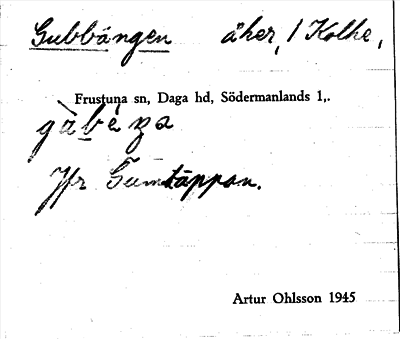 Gubbängen åker, / Kolhe,
Frustuna sn, Daga hd, Södermanlands l,.
Jfr Gumtäppan.
Artur Ohlsson 1945